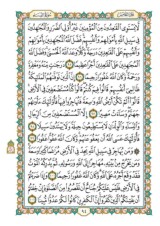 لَا يَسْتَوِي الْقَاعِدُونَ مِنَ الْمُؤْمِنِينَ غَيْرُ أُولِي الضَّرَرِ وَالْمُجَاهِدُونَ
فِي سَبِيلِ اللَّهِ بِأَمْوَالِهِمْ وَأَنْفُسِهِمْ فَضَّلَ اللَّهُ الْمُجَاهِدِينَ بِأَمْوَالِهِمْ
وَأَنْفُسِهِمْ عَلَى الْقَاعِدِينَ دَرَجَةً وَكُلًّا وَعَدَ اللَّهُ الْحُسْنَى وَفَضَّلَ اللَّهُ
الْمُجَاهِدِينَ عَلَى الْقَاعِدِينَ أَجْرًا عَظِيمًا دَرَجَاتٍ مِنْهُ وَمَغْفِرَةً
وَرَحْمَةً وَكَانَ اللَّهُ غَفُورًا رَحِيمًا إِنَّ الَّذِينَ تَوَفَّاهُمُ الْمَلَائِكَةُ
ظَالِمِي أَنْفُسِهِمْ قَالُوا فِيمَ كُنْتُمْ قَالُوا كُنَّا مُسْتَضْعَفِينَ فِي الْأَرْضِ
قَالُوا أَلَمْ تَكُنْ أَرْضُ اللَّهِ وَاسِعَةً فَتُهَاجِرُوا فِيهَا فَأُولَئِكَ مَأْوَاهُمْ
جَهَنَّمُ وَسَاءَتْ مَصِيرًا إِلَّا الْمُسْتَضْعَفِينَ مِنَ الرِّجَالِ
وَالنِّسَاءِ وَالْوِلْدَانِ لَا يَسْتَطِيعُونَ حِيلَةً وَلَا يَهْتَدُونَ سَبِيلًا
فَأُولَئِكَ عَسَى اللَّهُ أَنْ يَعْفُوَ عَنْهُمْ وَكَانَ اللَّهُ عَفُوًّا غَفُورًا
وَمَنْ يُهَاجِرْ فِي سَبِيلِ اللَّهِ يَجِدْ فِي الْأَرْضِ مُرَاغَمًا كَثِيرًا وَسَعَةً
وَمَنْ يَخْرُجْ مِنْ بَيْتِهِ مُهَاجِرًا إِلَى اللَّهِ وَرَسُولِهِ ثُمَّ يُدْرِكْهُ الْمَوْتُ
فَقَدْ وَقَعَ أَجْرُهُ عَلَى اللَّهِ وَكَانَ اللَّهُ غَفُورًا رَحِيمًا وَإِذَا ضَرَبْتُمْ
فِي الْأَرْضِ فَلَيْسَ عَلَيْكُمْ جُنَاحٌ أَنْ تَقْصُرُوا مِنَ الصَّلَاةِ إِنْ خِفْتُمْ
أَنْ يَفْتِنَكُمُ الَّذِينَ كَفَرُوا إِنَّ الْكَافِرِينَ كَانُوا لَكُمْ عَدُوًّا مُبِينًا